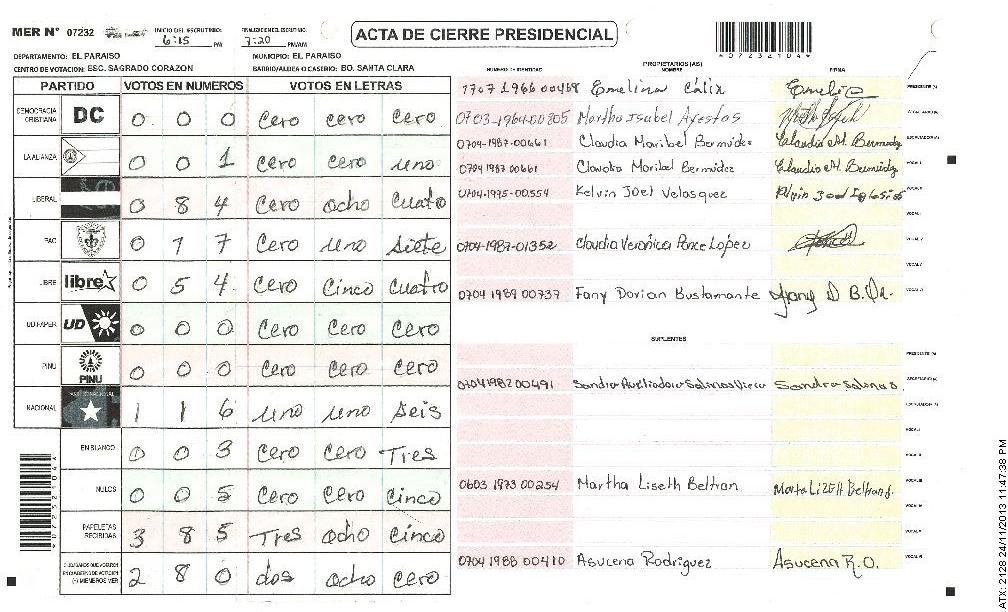 MER N° 07232
INICIO DEL ESCRUTINIO: 6:15 PM
FINALIZACION EL ESCRUTINIO: 7:20 PM/AM
ACTA DE CIERRE PRESIDENCIAL
*07232104*
DEPARTAMENTO: EL PARAISO
MUNICIPIO: EL PARAISO
CENTRO DE VOTACION: ESC. SAGRADO CORAZON
BARRIO/ALDEA O CASERIO: BO. SANTA CLARA
PARTIDO VOTOS EN NUMEROS VOTOS EN LETRAS
DEMOCRACIA CRISTIANA DC 0 0 0 Cero Cero Cero
LA ALIANZA 0 0 1 Cero Cero uno
LIBERAL 0 8 4 Cero ocho Cuatro
PAC 0 1 7 Cero uno Siete
LIBRE libre 0 5 4 Cero Cinco Cuatro
UD FAPER UD 0 0 0 Cero Cero Cero
PINU PINU 0 0 0 Cero Cero Cero
NACIONAL 1 1 6 uno uno Seis
EN BLANCO 0 0 3 Cero Cero Tres
NULOS 0 0 5 Cero Cero Cinco
PAPELETAS RECIBIDAS 3 8 5 Tres ocho Cinco
CIUDADANOS QUE VOTARON
EN CUADERNO DE VOTACION
(+) MIEMBROS MER 2 8 0 dos ocho cero
PROPIETARIOS (AS)
NUMERO DE IDENTIDAD NOMBRE FIRMA
Emelina Cálix PRESIDENTE (A)
0703-1964-00805 Martha Isabel SECRETARIO (A)
0704-1987-00661 Claudia Maribel Bermúdez Claudia M. Bermudez ESCRUTADOR (A)
0704 1987 00661 Claudia Maribel Bermúdez Claudia M. Bermudez VOCAL I
0704-1995-00554 Kelvin Joel Velasquez
0704-1987-01352 Claudia Verónica Ponce Lopez
0704 1989 00737 Fany Dorian Bustamante Fany D B.
SUPLENTES
PRESIDENTE (A)
0704 1982 00491 Sandra Salinas SECRETARIO (A)
ESCRUTADOR (A)
VOCAL I
VOCAL II
0603 1973 00254 Martha Liseth Beltran Marta Lizett Beltrand. VOCAL III
VOCAL IV
VOCAL V
0704 1988 00410 Asucena Rodriguez Asucena R.O. VOCAL VI
ATX: 2128 24/11/2013 11:47:38 PM